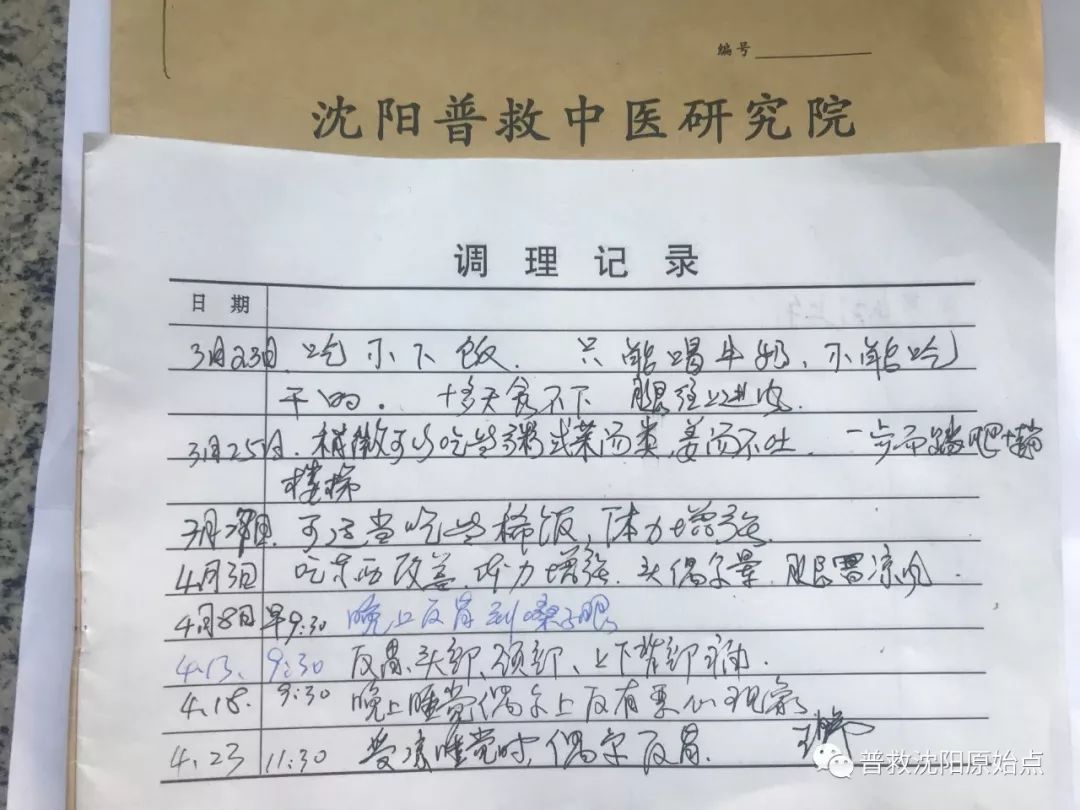 编号
沈阳普救中医研究院
调理记录
日期
3月23日. 吃不下饭. 只能喝牛奶, 不能吃
干的. 十多天食不下
3月25日. 稍微可以吃些粥或菜汤类, 姜汤不吐. 一步
楼梯
可适当吃些稀饭, 体力增强.
4月3日 吃东西改善, 体力增强. 头偶尔晕. 腿冒凉风.
4月8日 早9:30 晚上反胃到嗓子眼
4.13. 9:30 反胃、头部、颈部、上下背部
4.18. 9:30 晚上睡觉偶尔上反有恶心现象
4.23 11:30 睡觉时, 偶尔反胃.
普救沈阳原始点